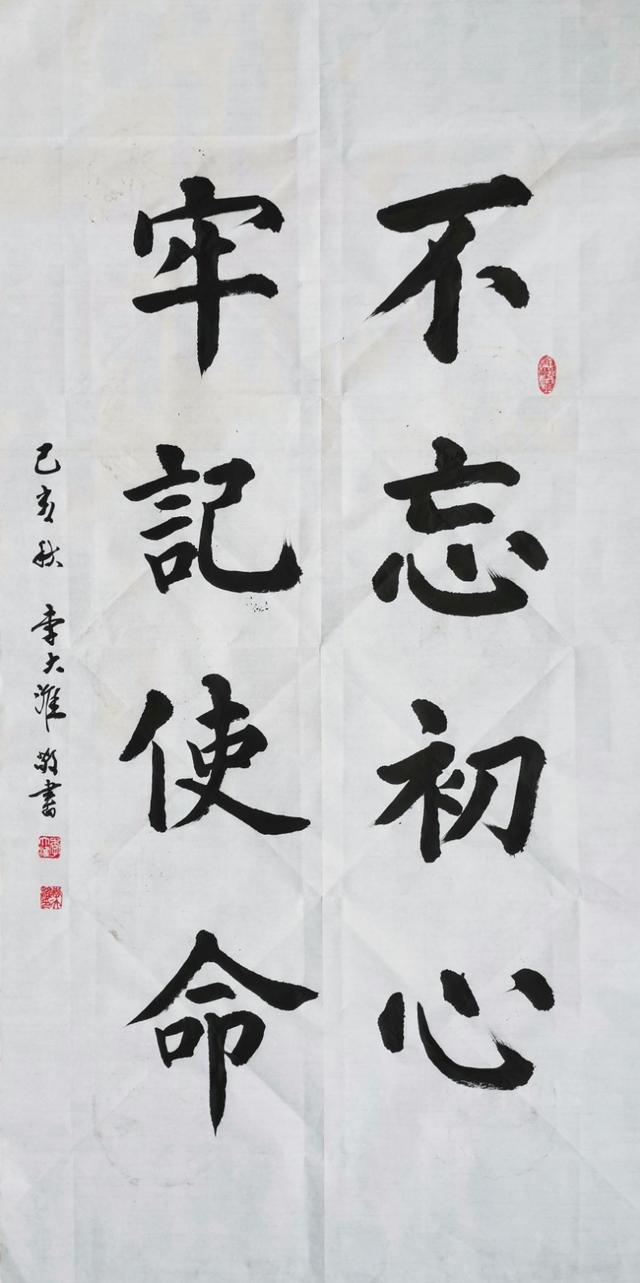 不忘初心
牢記使命
己亥秋 李大淮敬書